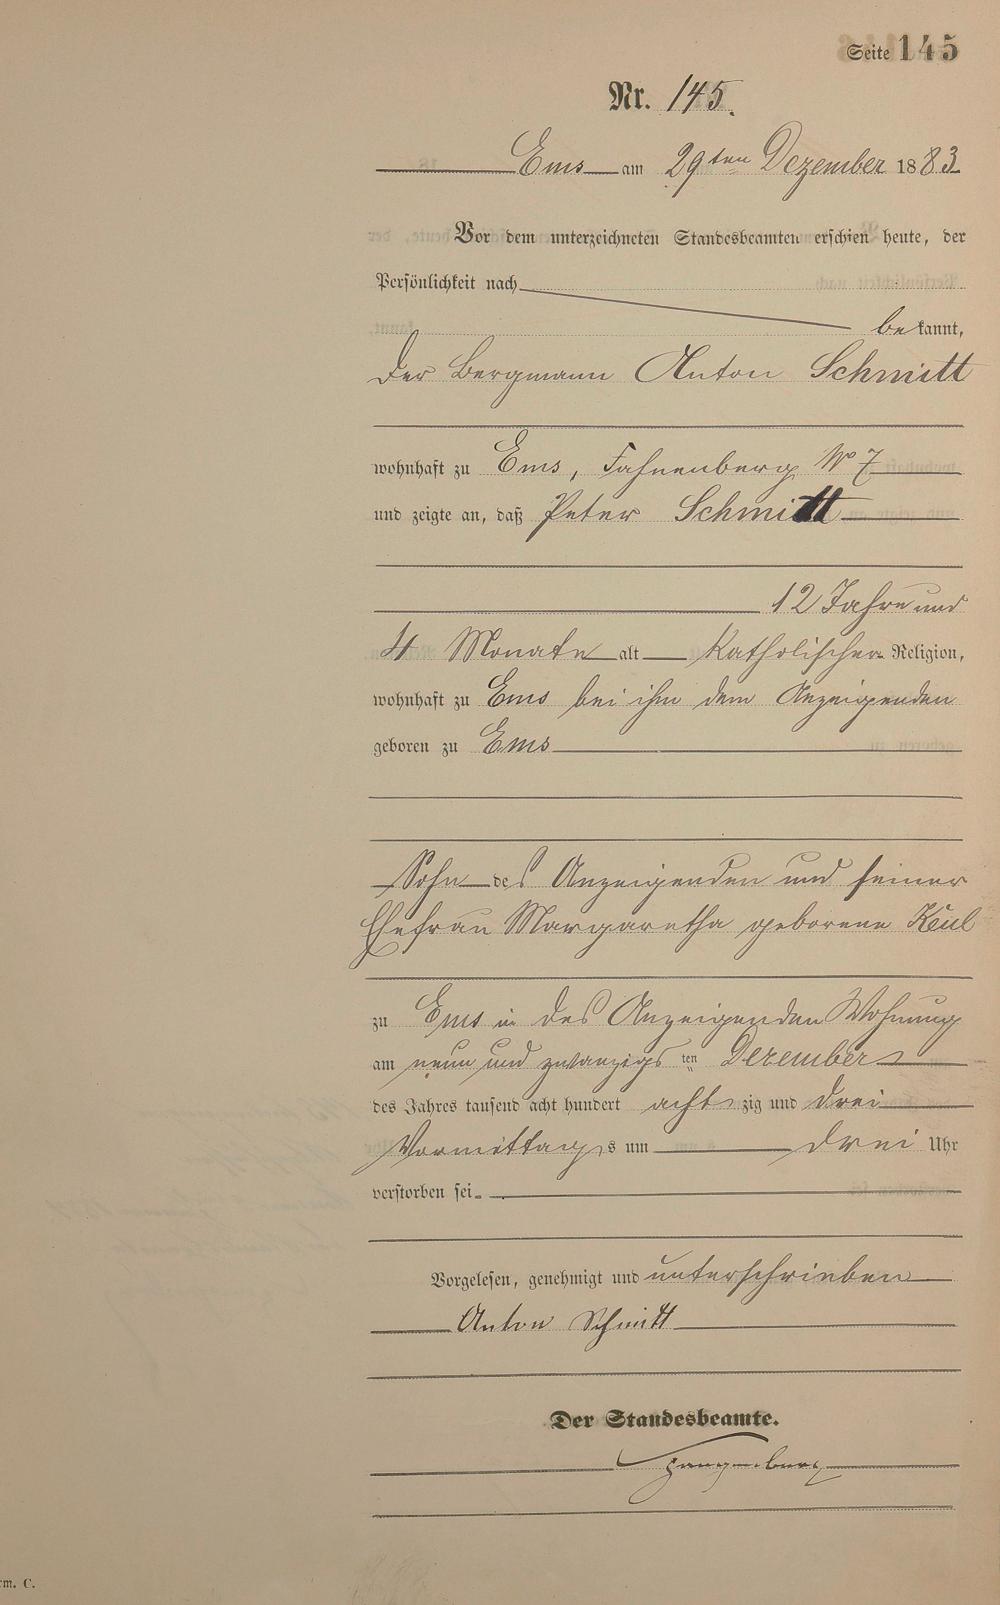 Seite 145
Nr. 145.
Ems am 29ten Dezember 1883
Vor dem unterzeichneten Standesbeamten erschien heute, der
Persönlichkeit nach
bekannt,
Der Bergmann Anton Schmitt
wohnhaft zu Ems, Fahnenberg No 7
und zeigte an, daß Peter Schmitt
12 Jahre und
4 Monate alt katholischer Religion,
wohnhaft zu Ems bei ihm dem Anzeigenden
geboren zu Ems
Sohn des Anzeigenden und seiner
Ehefrau Margaretha geborene Keul
zu Ems in des Anzeigenden Wohnung
am neun und zwanzigsten Dezember
des Jahres tausend acht hundert achtzig und drei
Vormittags um drei Uhr
verstorben sei.
Vorgelesen, genehmigt und unterschrieben
Anton Schmitt
Der Standesbeamte.
rm. C.